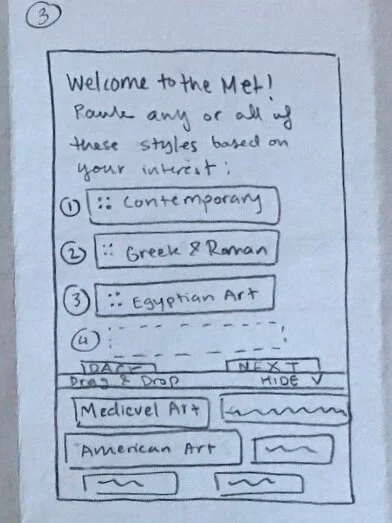 3
Welcome to the Met!
Rank any or all of
these styles based on
your interest:
1 :: Contemporary
2 :: Greek & Roman
3 :: Egyptian Art
4
BACK NEXT
Drag & Drop HIDE
Medievel Art
American Art